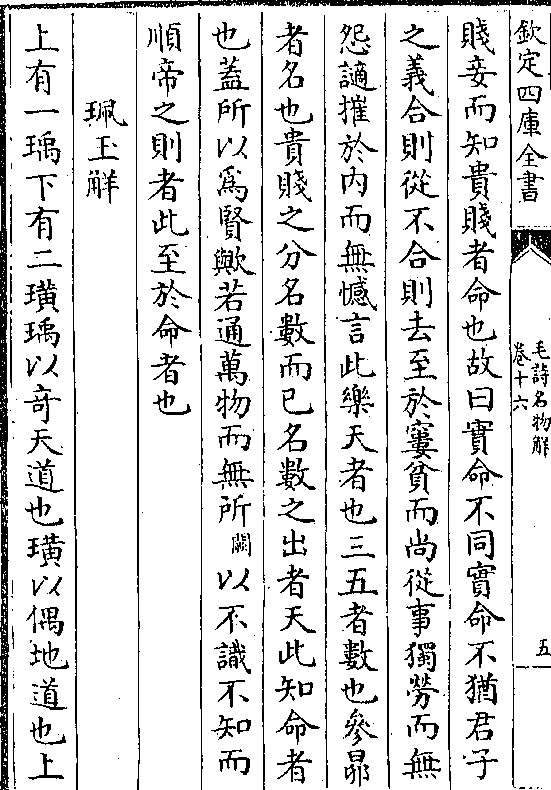 欽定四庫全書
毛詩名物解
卷十六
五
賤妾而知貴賤者命也故曰實命不同實命不猶君子
之義合則從不合則去至於窶貧而尚從事獨勞而無
怨讁摧於内而無憾言此樂天者也三五者數也參昴
者名也貴賤之分名數而已名數之出者天此知命者
也蓋所以爲賢歟若通萬物而無所闕以不識不知而
順帝之則者此至於命者也
珮玉解
上有一瑀下有二璜瑀以竒天道也璜以偶地道也上